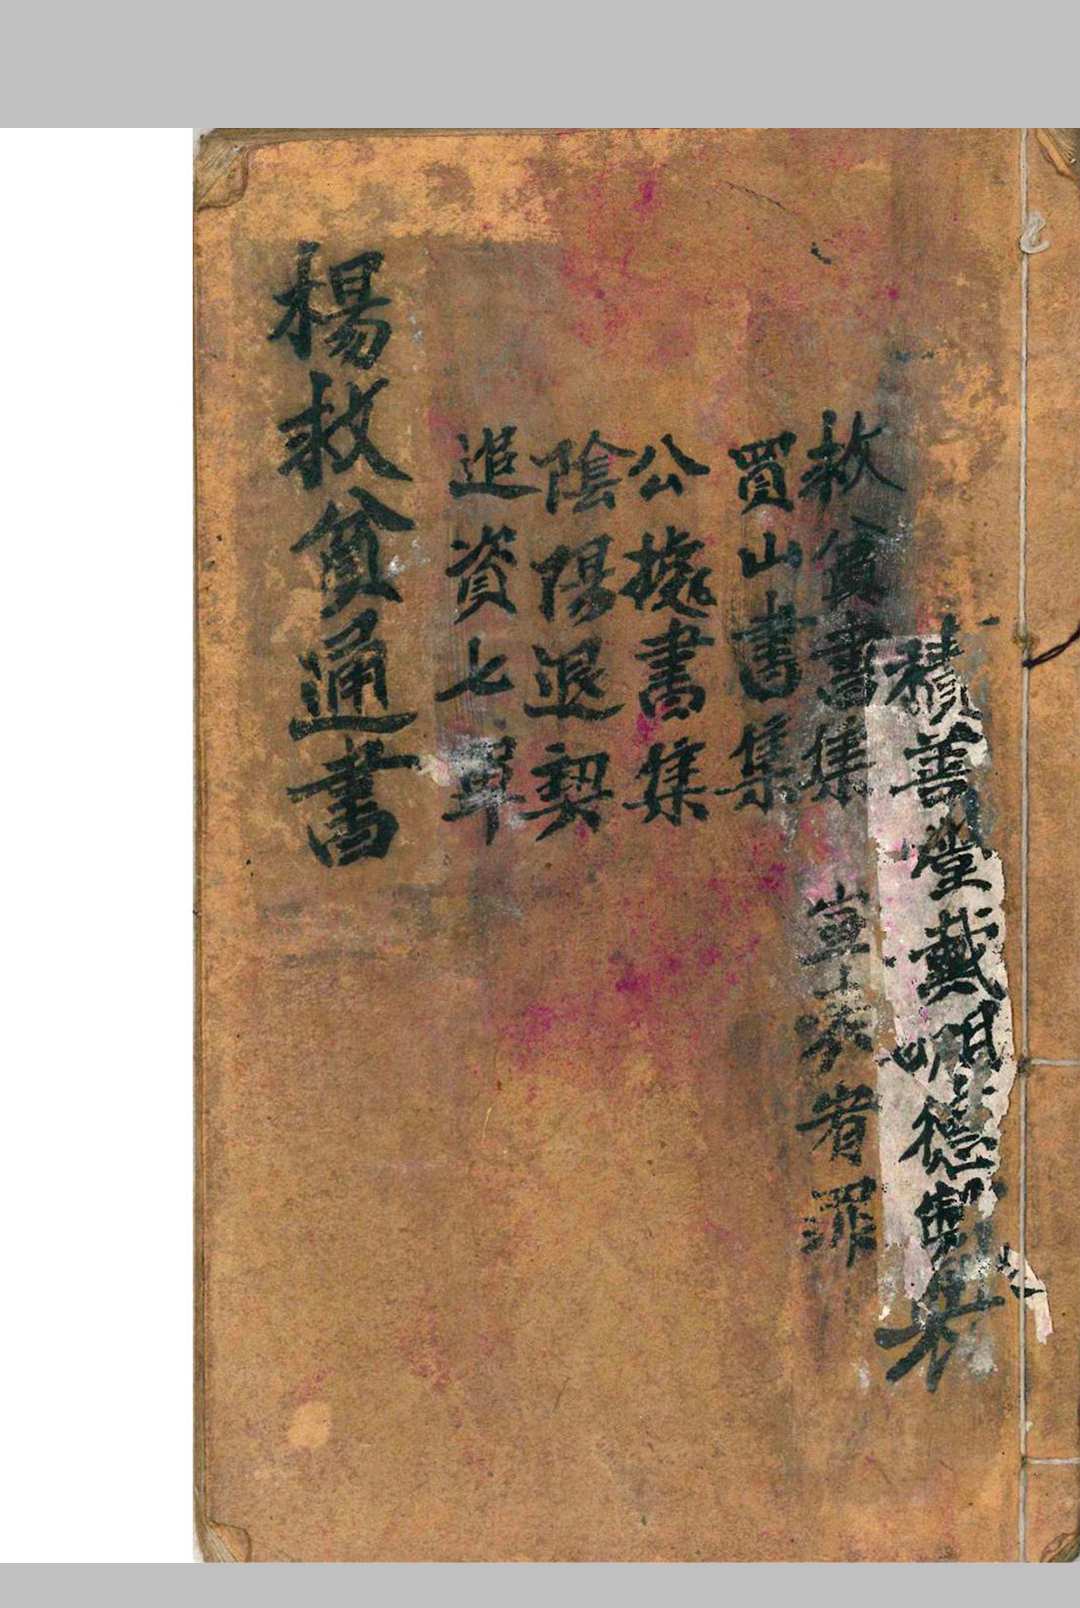 積善堂戴明德製
救貧書集
者罪
買山書集
公據書集
陰陽退契
追資七單
楊救貧通書